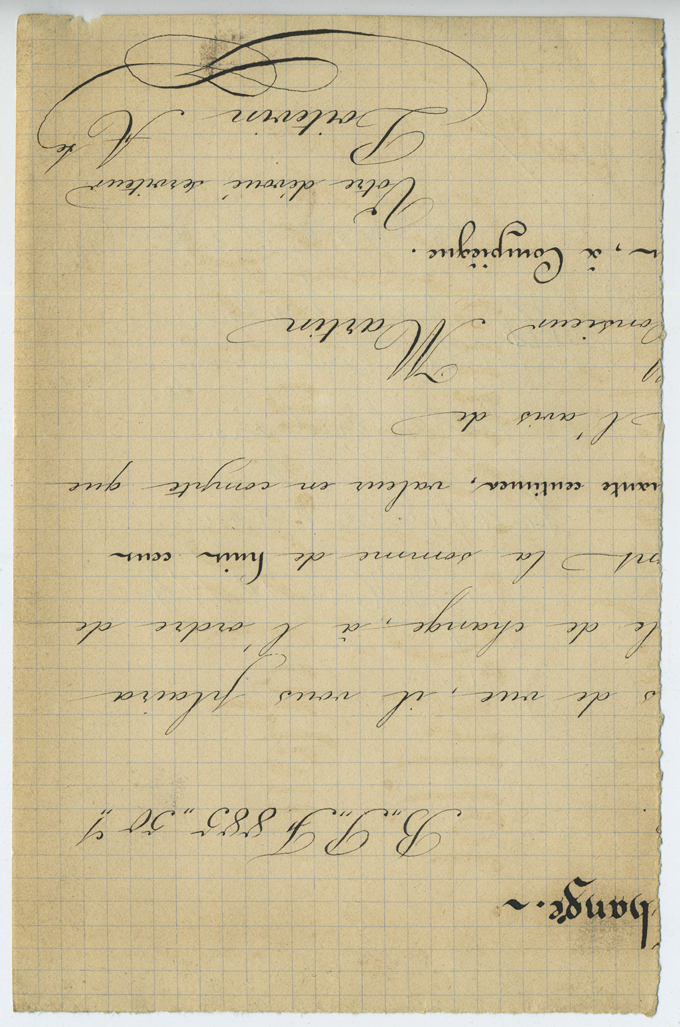 hange.~
B„ P„ F„ 885„ 50 %
s de vue, il vous plaira
le de change, à l'ordre de
nt la somme de huit cent
uante centimes, valeur en compte que
l'avis de
Monsieur Martin
~, à Compiègne.
Votre dévoué serviteur
Poitevin A te